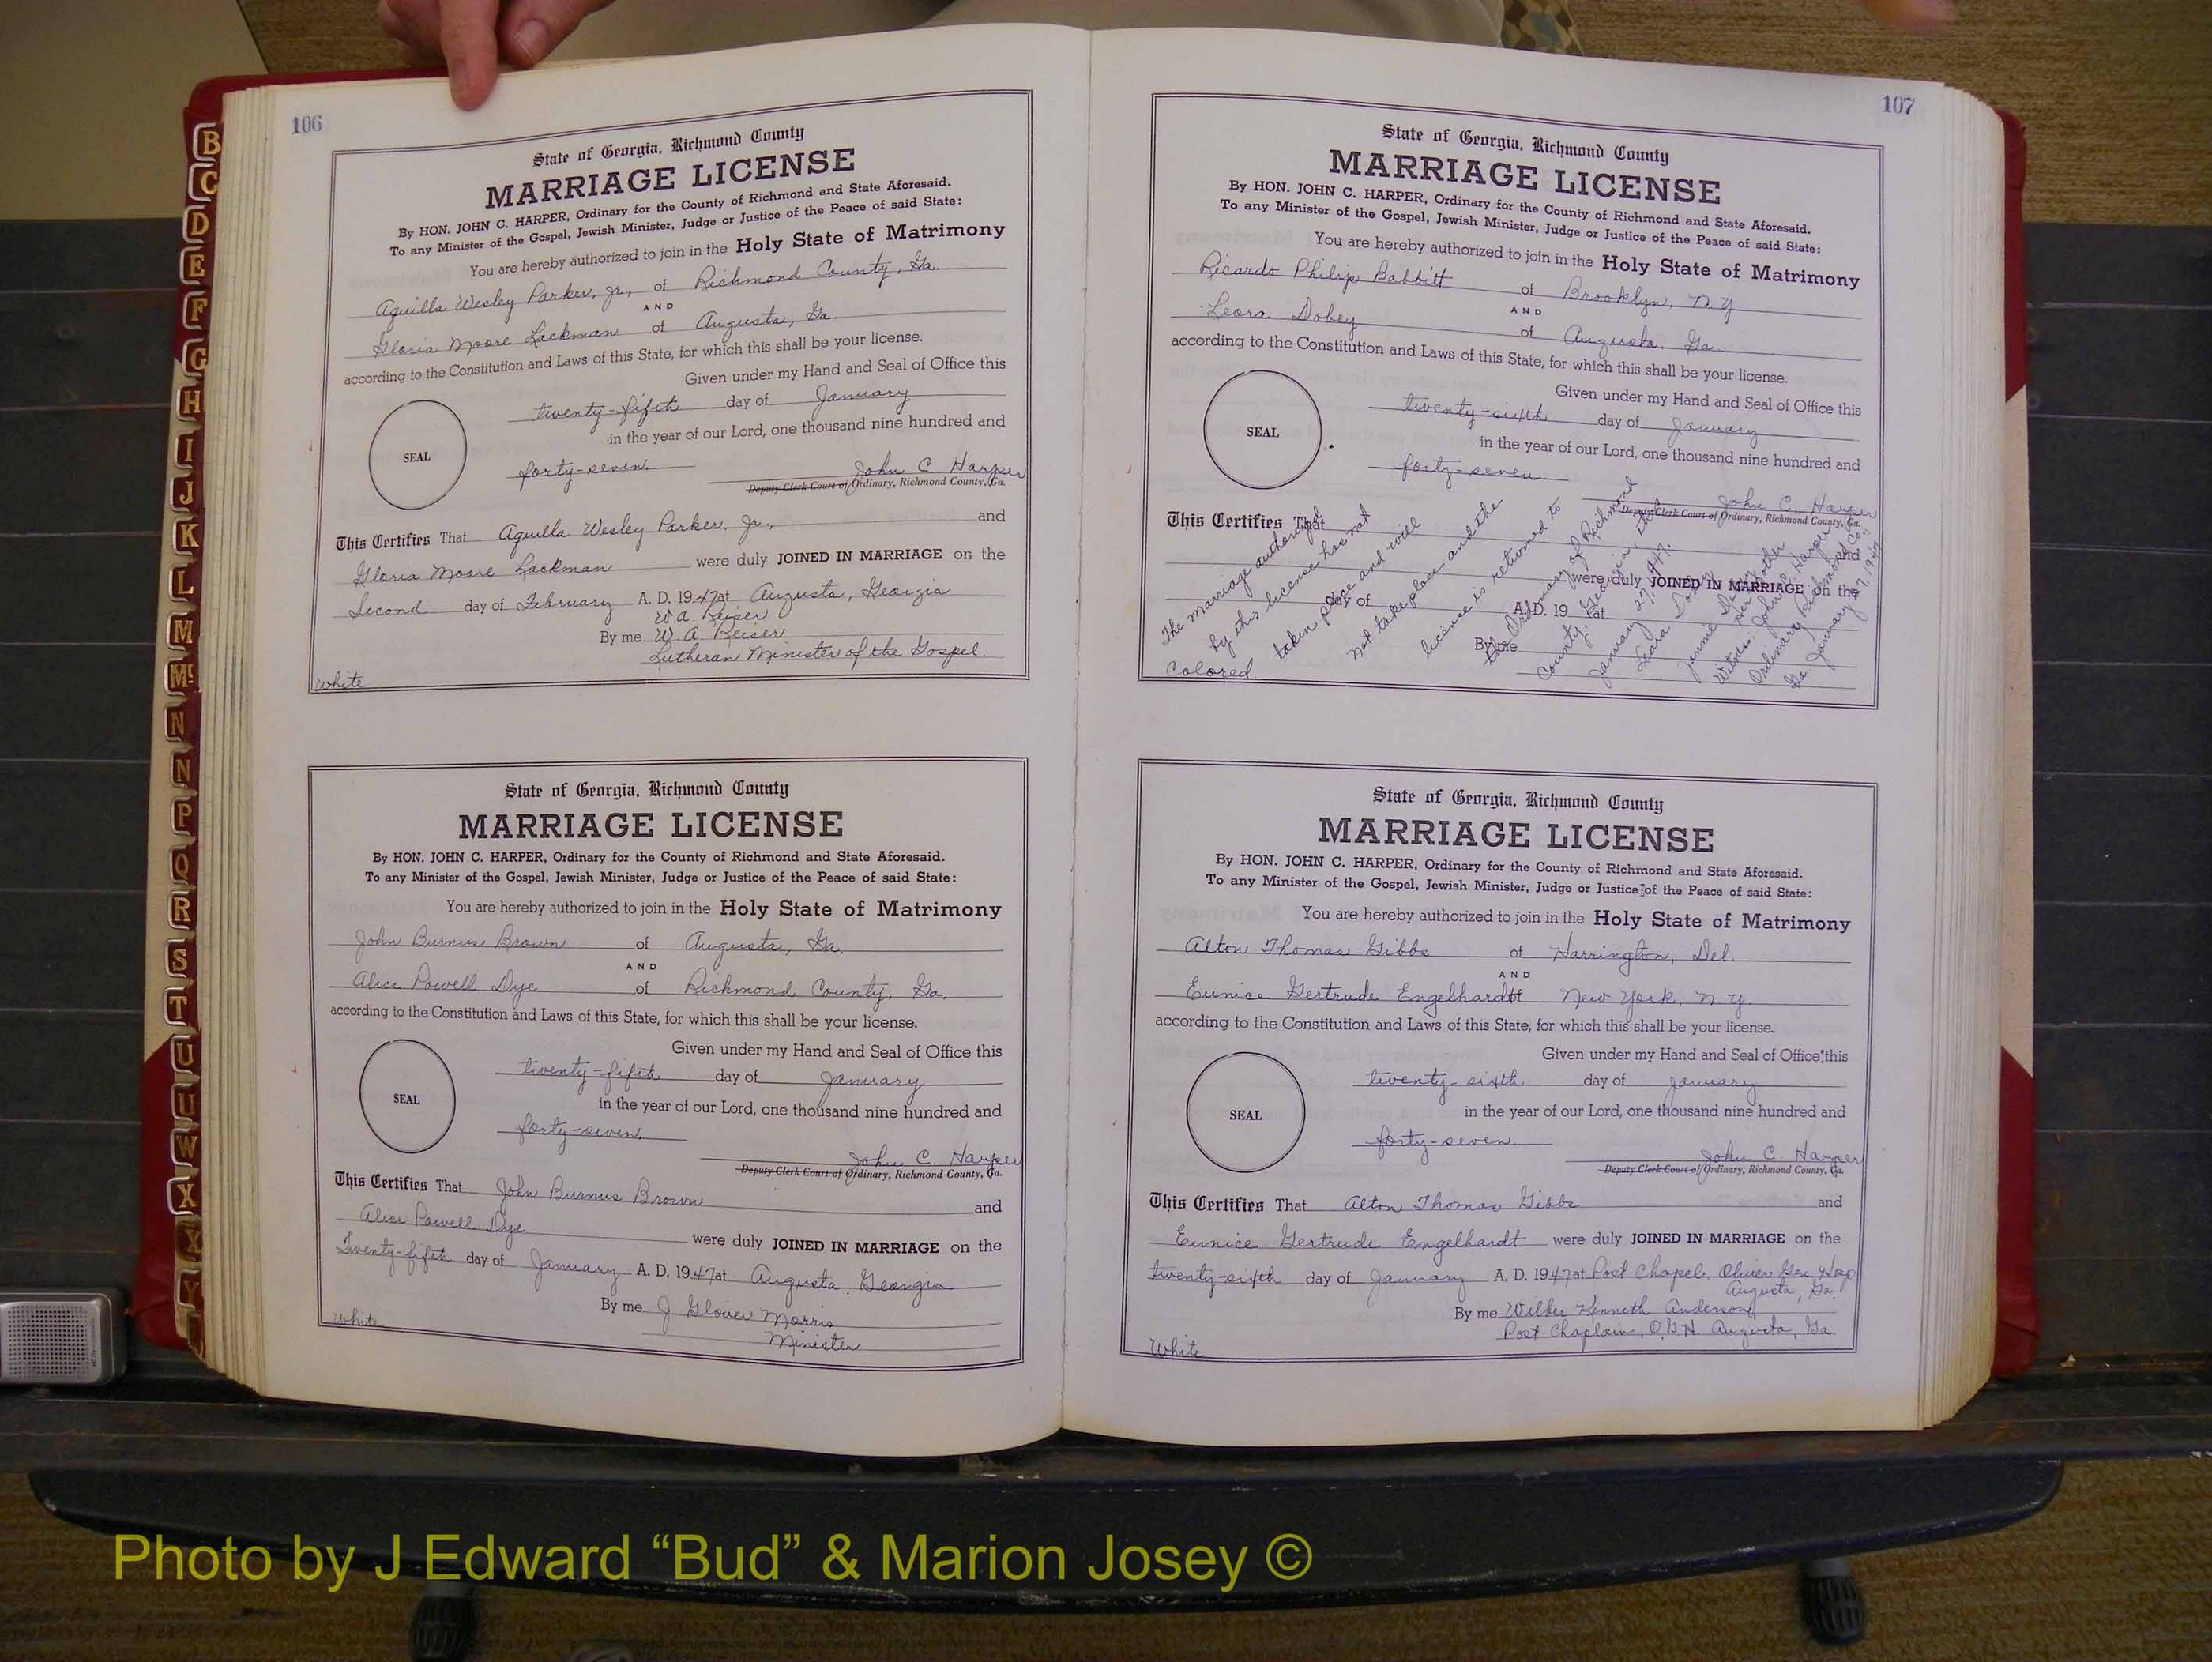 B
C
D
E
F
G
H
I
J
K
L
M
Mc
N
N
P
Q
R
S
T
U
U
W
X
X
Y
106
State of Georgia, Richmond County
MARRIAGE LICENSE
By HON. JOHN C. HARPER, Ordinary for the County of Richmond and State Aforesaid.
To any Minister of the Gospel, Jewish Minister, Judge or Justice of the Peace of said State:
You are hereby authorized to join in the Holy State of Matrimony
Aquilla Wesley Parker, Jr., of Richmond County, Ga.
AND
Gloria Moore Lackman of Augusta, Ga.
according to the Constitution and Laws of this State, for which this shall be your license.
Given under my Hand and Seal of Office this
twenty-fifth day of January
in the year of our Lord, one thousand nine hundred and
SEAL
forty-seven.
John C Harper
Deputy Clerk Court of Ordinary, Richmond County, Ga.
This Certifies That Aquilla Wesley Parker, Jr., and
Gloria Moore Lackman were duly JOINED IN MARRIAGE on the
Second day of February A. D. 1947 at Augusta, Georgia
W.A. Reiser
By me W. A. Reiser
Lutheran Minister of the Gospel.
White
State of Georgia, Richmond County
MARRIAGE LICENSE
By HON. JOHN C. HARPER, Ordinary for the County of Richmond and State Aforesaid.
To any Minister of the Gospel, Jewish Minister, Judge or Justice of the Peace of said State:
You are hereby authorized to join in the Holy State of Matrimony
John Burnus Brown of Augusta, Ga.
AND
Alice Powell Dye of Richmond County, Ga.
according to the Constitution and Laws of this State, for which this shall be your license.
Given under my Hand and Seal of Office this
twenty-fifth day of January
in the year of our Lord, one thousand nine hundred and
SEAL
forty-seven.
John C. Harper
Deputy Clerk Court of Ordinary, Richmond County, Ga.
This Certifies That John Burnus Brown and
Alice Powell Dye were duly JOINED IN MARRIAGE on the
Twenty-fifth day of January A. D. 1947 at Augusta, Georgia
By me J. Glover Morris
Minister
White
107
State of Georgia, Richmond County
MARRIAGE LICENSE
By HON. JOHN C. HARPER, Ordinary for the County of Richmond and State Aforesaid.
To any Minister of the Gospel, Jewish Minister, Judge or Justice of the Peace of said State:
You are hereby authorized to join in the Holy State of Matrimony
Ricardo Philip Babbitt of Brooklyn, N Y
AND
Leora Dobey of Augusta, Ga.
according to the Constitution and Laws of this State, for which this shall be your license.
Given under my Hand and Seal of Office this
twenty-sixth day of January
in the year of our Lord, one thousand nine hundred and
SEAL
forty-seven.
John C. Harper
Deputy Clerk Court of Ordinary, Richmond County, Ga.
This Certifies That
and
were duly JOINED IN MARRIAGE on the
day of A. D. 19 at
By me
The marriage authorized
by this license has not
taken place and will
not take place and the
license is returned to
the Ordinary of Richmond
County, Georgia, this
January 27, 1947.
Leora Dobey
Jannie
her mother
Witness: John C. Harper
Ordinary, Richmond Co.,
Ga. January 27, 1947
Colored
State of Georgia, Richmond County
MARRIAGE LICENSE
By HON. JOHN C. HARPER, Ordinary for the County of Richmond and State Aforesaid.
To any Minister of the Gospel, Jewish Minister, Judge or Justice of the Peace of said State:
You are hereby authorized to join in the Holy State of Matrimony
Alton Thomas Gibbs of Harrington, Del.
AND
Eunice Gertrude Engelhardt of New York, N Y.
according to the Constitution and Laws of this State, for which this shall be your license.
Given under my Hand and Seal of Office this
twenty-sixth day of January
in the year of our Lord, one thousand nine hundred and
SEAL
forty-seven.
John C. Harper
Deputy Clerk Court of Ordinary, Richmond County, Ga.
This Certifies That Alton Thomas Gibbs and
Eunice Gertrude Engelhardt were duly JOINED IN MARRIAGE on the
twenty-sixth day of January A. D. 1947 at Post Chapel, Oliver Gen. Hosp
Augusta, Ga.
By me Wilber Kenneth Anderson,
Post Chaplain, O.G.H. Augusta, Ga.
White
Photo by J Edward “Bud” & Marion Josey ©